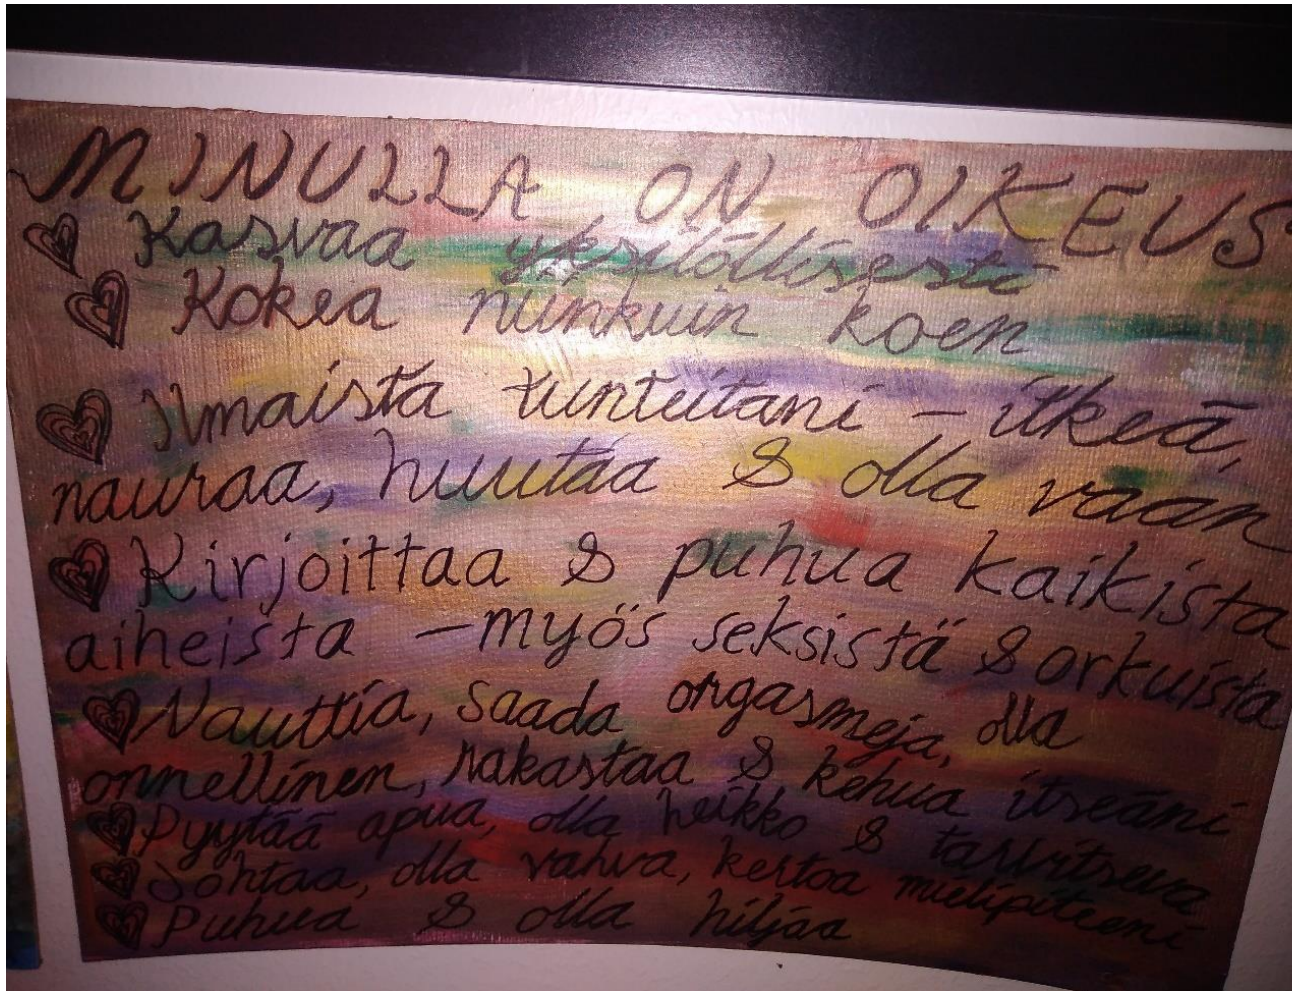 MINULLA ON OIKEUS
Kasvaa yksilöllisesti
Kokea niinkuin koen
Ilmaista tunteitani - itkeä,
nauraa, huutaa & olla vaan
Kirjoittaa & puhua kaikista
aiheista - myös seksistä & orkuista
Nauttia, saada orgasmeja, olla
onnellinen, rakastaa & kehua itseäni
Pyytää apua, olla heikko & tarvitseva
Johtaa, olla vahva, kertoa mielipiteeni
Puhua & olla hiljaa